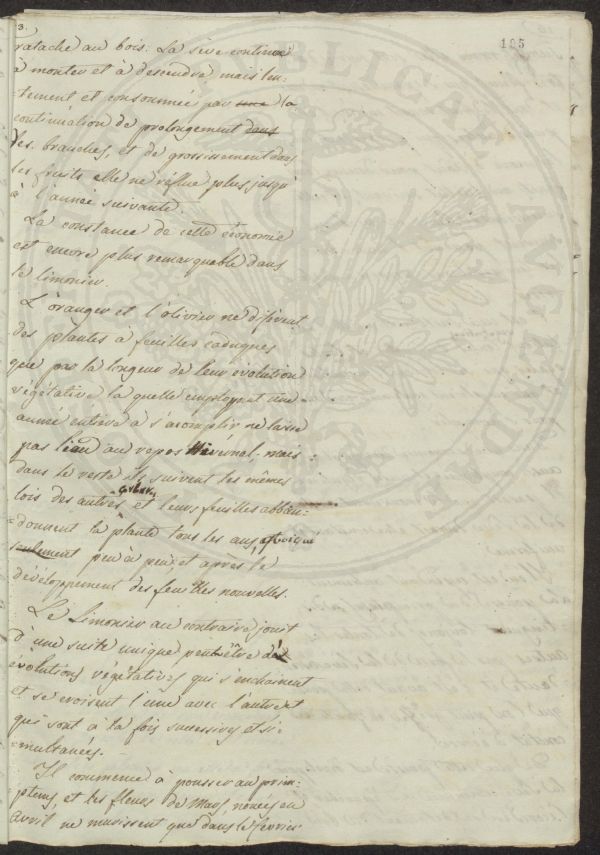 3.
185
ratache au bois. La sève continue
à monter et à descendre mais len-
-tement et consommée par une la
continuation de prolongement dans
les branches, et de grossissement dans
les fruits elle ne réflue plus jusqu'
à l'année suivante.
La constance de cette économie
est encore plus remarquable dans
le limonier.
L'oranger et l'olivier ne diferent
des plantes à feuilles caduques
que par la longeur de leur évolution
végétative la quelle employent une
année entiere à s'acomplir ne laisse
pas lieu au repos hivérnel, mais
dans le reste ils suivent les mêmes
lois des autres arbres et leurs feuilles abban-
-donnent la plante tous les ans quoique
seulement peu à peu, et après le
dévéloppement des feuilles nouvelles.
Le Limonier au contraire jouit
d'une suite unique peut être de
évolutions végétatives qui s'enchainent
et se croisent l'une avec l'autre et
qui sont à la fois successives et si-
-multanées.
Il commence à pousser au prim-
ptems, et les fleurs de May, nouées en
avril ne murissent que dans le fevrier